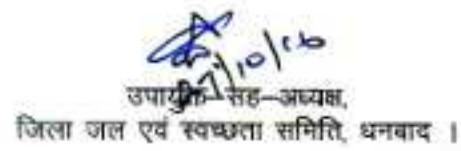 27/10/16
उपायुक्त–सह–अध्यक्ष,
जिला जल एवं स्वच्छता समिति, धनबाद ।